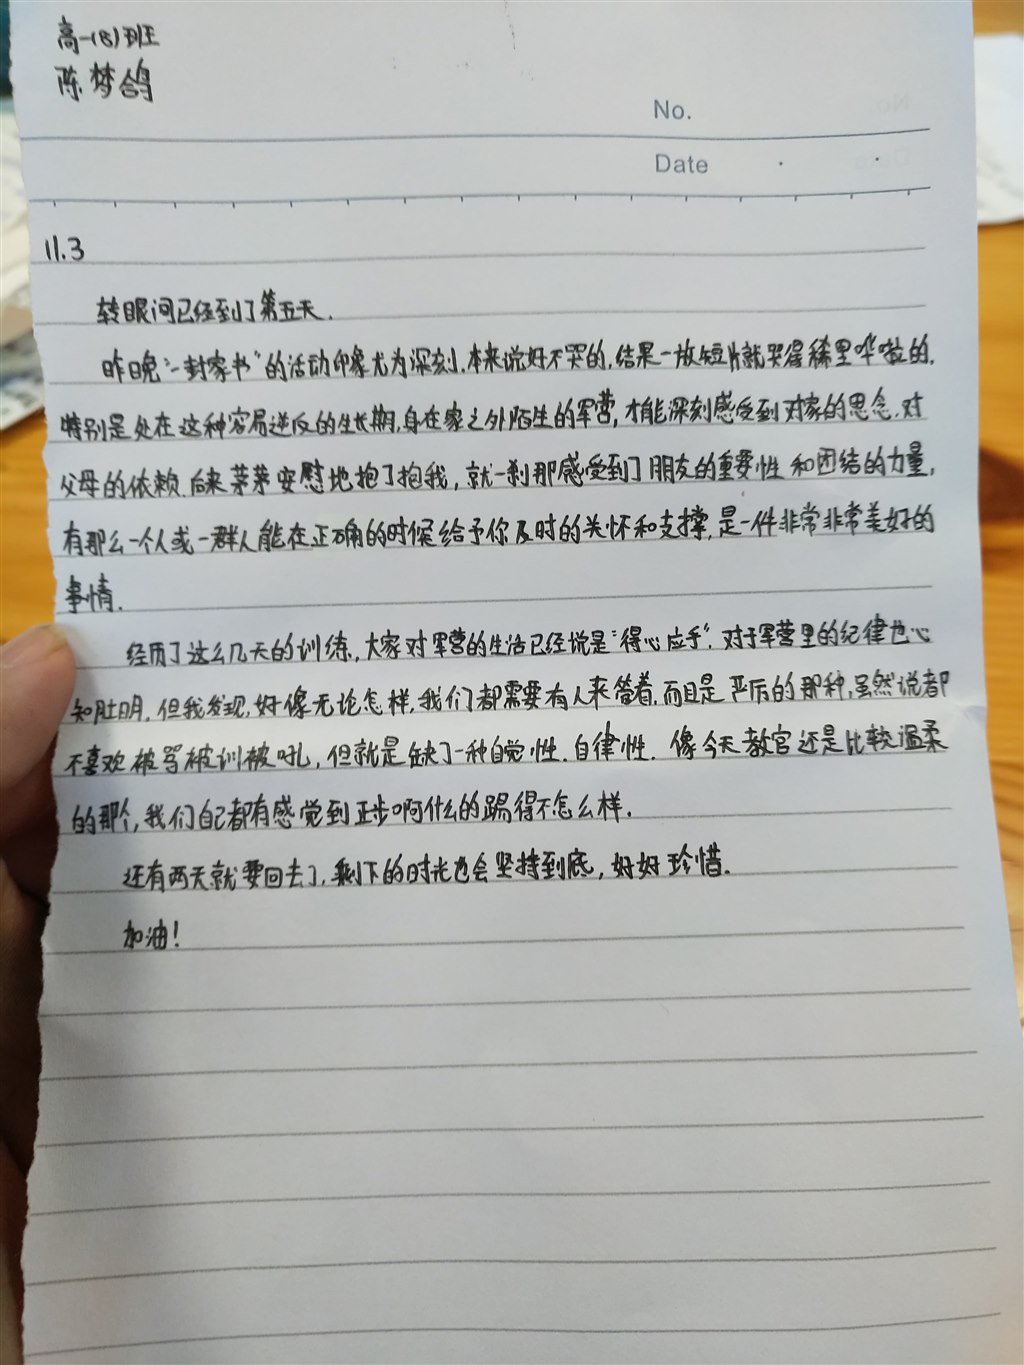 高一(8)班
陈梦鸽
No.
Date
11.3
转眼间已经到了第五天.
昨日晚“一封家书”的活动印象尤为深刻.本来说好不哭的,结果一放短片就哭得稀里哗啦的.
特别是处在这种容易逆反的生长期,身在家之外陌生的军营,才能深刻感受到对家的思念.对
父母的依赖.后来茅茅安慰地抱了抱我,就一刹那感受到了朋友的重要性和团结的力量,
有那么一个人或一群人能在正确的时候给予你及时的关怀和支撑,是一件非常非常美好的
事情.
经历了这么几天的训练,大家对军营的生活已经说是“得心应手”.对于军营里的纪律也心
知肚明.但我发现,好像无论怎样,我们都需要有人来管着,而且是严厉的那种,虽然说都
不喜欢被骂被训被吼,但就是缺了一种自觉性.自律性.像今天教官还是比较温柔
的那个,我们自己都有感觉到正步啊什么的踢得不怎么样.
还有两天就要回去了,剩下的时光也会坚持到底,好好珍惜.
加油!